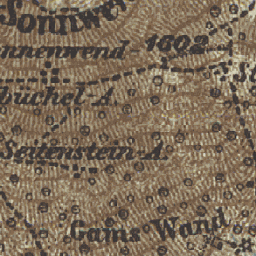 Sonnwe
nnenwend 1602
büchel-A.
Seitenstein-A.
Gams Wand